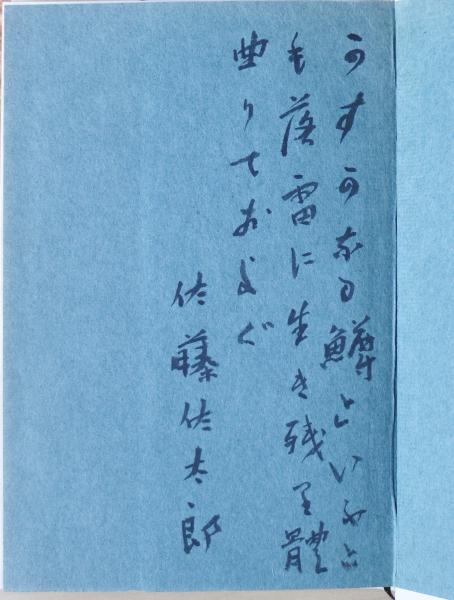 かすかなる鱒といふと
も落雷に生き残り體
曲りておよぐ
佐藤佐太郎